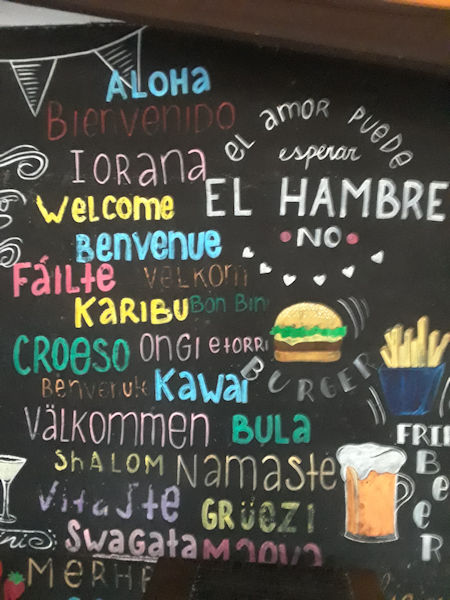 ALOHA
Bienvenido
IORANA
Welcome
Benvenue
FÁILTE VELKOM
KARIBU BON BINI
CROESO ONGI etorri
Benvenute KAWAI
VÄLKOMMEN BULA
SHALOM Namaste
Vitajte GRÜEZI
Swagata
MERHB
EL AMOR PUEDE
esperar
EL HAMBRE
NO
BURGER
FRI
BEER